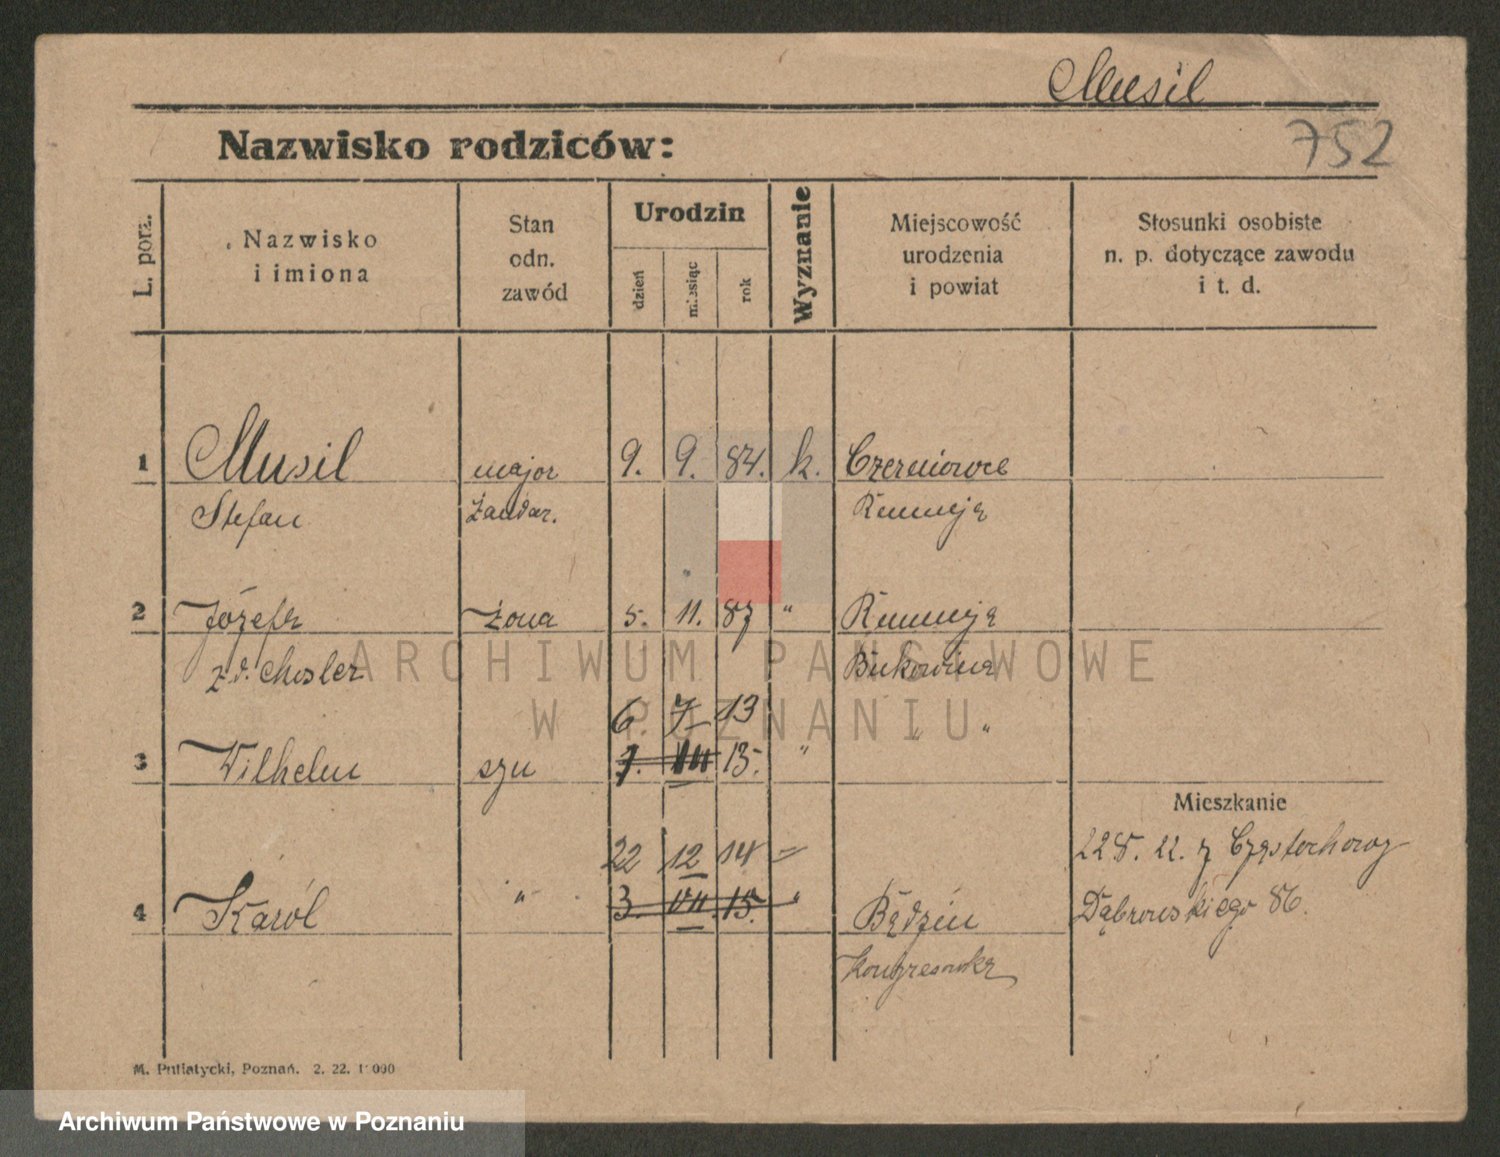 Musil
752
Nazwisko rodziców:
L. porz.
Nazwisko
i imiona
Stan
odn.
zawód
Urodzin
dzień
miesiąc
rok
Wyznanie
Miejscowość
urodzenia
i powiat
Stosunki osobiste
n. p. dotyczące zawodu
i t. d.
1 Musil major 9. 9. 84. k. Czerniowce
Stefan Żandar. Rumunja
2 Józefa żona 5. 11. 87 " Rumunja
z d. Chosler Bukowina
6 7 13
3 Wilhelm syn 7. VIII 13. " " "
Mieszkanie
22 12 14 =
228. 22. z Częstochowy
4 Karól " 3. VII. 15. " Będzin
Dąbrowskiego 86.
Kongresówka
M. Putiatycki, Poznań. 2. 22. 1000
ARCHIWUM PAŃSTWOWE
W POZNANIU
Archiwum Państwowe w Poznaniu